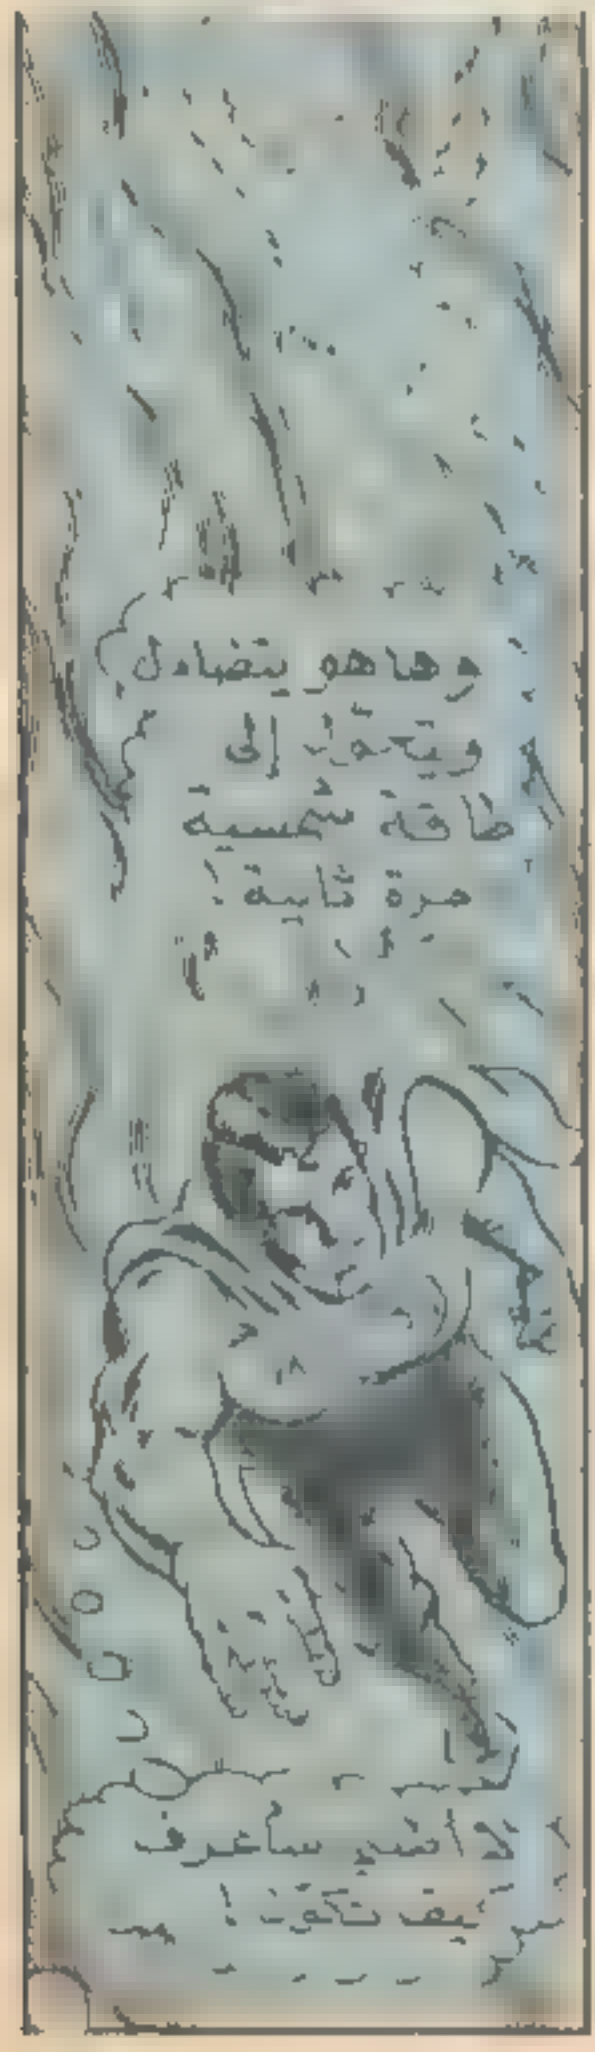 وهاهو يتضاءل
ويتحول إلى
طاقة شمسية
مرة ثانية !
لا ضير سأعرف
كيف تكون !